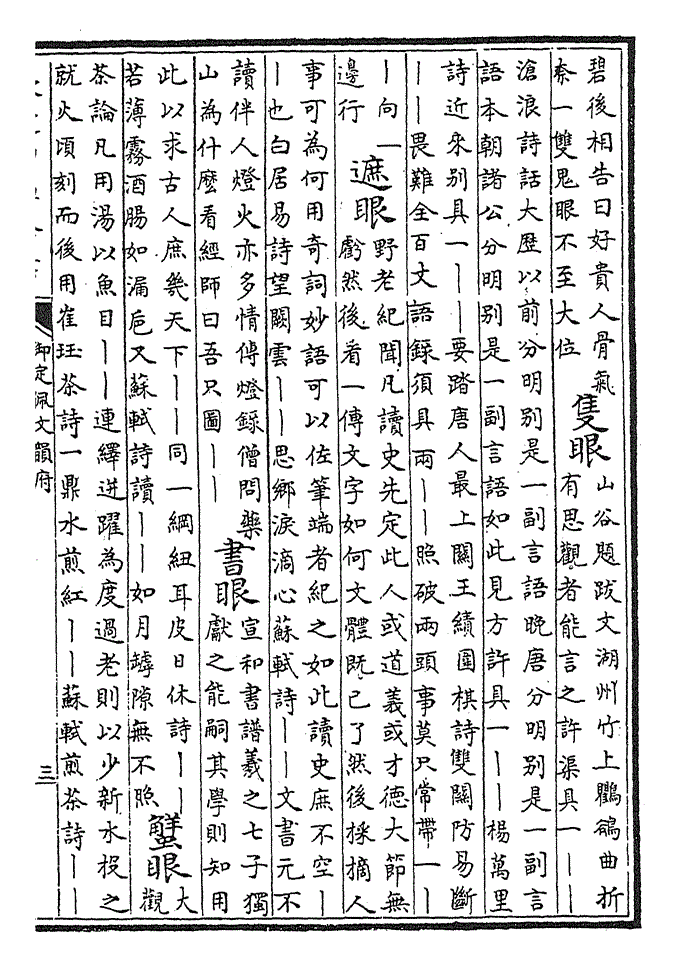 碧後相告曰好貴人骨氣
柰一雙鬼眼不至大位
隻眼
山谷題跋文湖州竹上鸜鵒曲折
有思觀者能言之許渠具一——
滄浪詩話大歷以前分明別是一副言語晚唐分明別是一副言
語本朝諸公分明別是一副言語如此見方許具一——楊萬里
詩近來別具一———要踏唐人最上關王績圍棋詩雙關防易斷
——畏難全百丈語錄須具兩——照破兩頭事莫只常帶一—
—向一
邊行
遮眼
野老紀聞凡讀史先定此人或道義或才德大節無
虧然後看一傳文字如何文體既已了然後採摘人
事可為何用奇詞妙語可以佐筆端者紀之如此讀史庶不空—
—也白居易詩望闕雲——思鄉淚滴心蘇軾詩——文書元不
讀伴人燈火亦多情傳燈錄僧問藥
山為什麽看經師曰吾只圖——
書眼
宣和書譜羲之七子獨
獻之能嗣其學則知用
此以求古人庶幾天下———同一綱紐耳皮日休詩——
若薄霧酒腸如漏卮又蘇軾詩讀——如月罅隙無不照
蟹眼
大
觀
茶論凡用湯以魚目——連繹迸躍為度過老則以少新水投之
就火頃刻而後用崔珏茶詩一鼎水煎紅——蘇軾煎茶詩——
御定佩文韻府
三